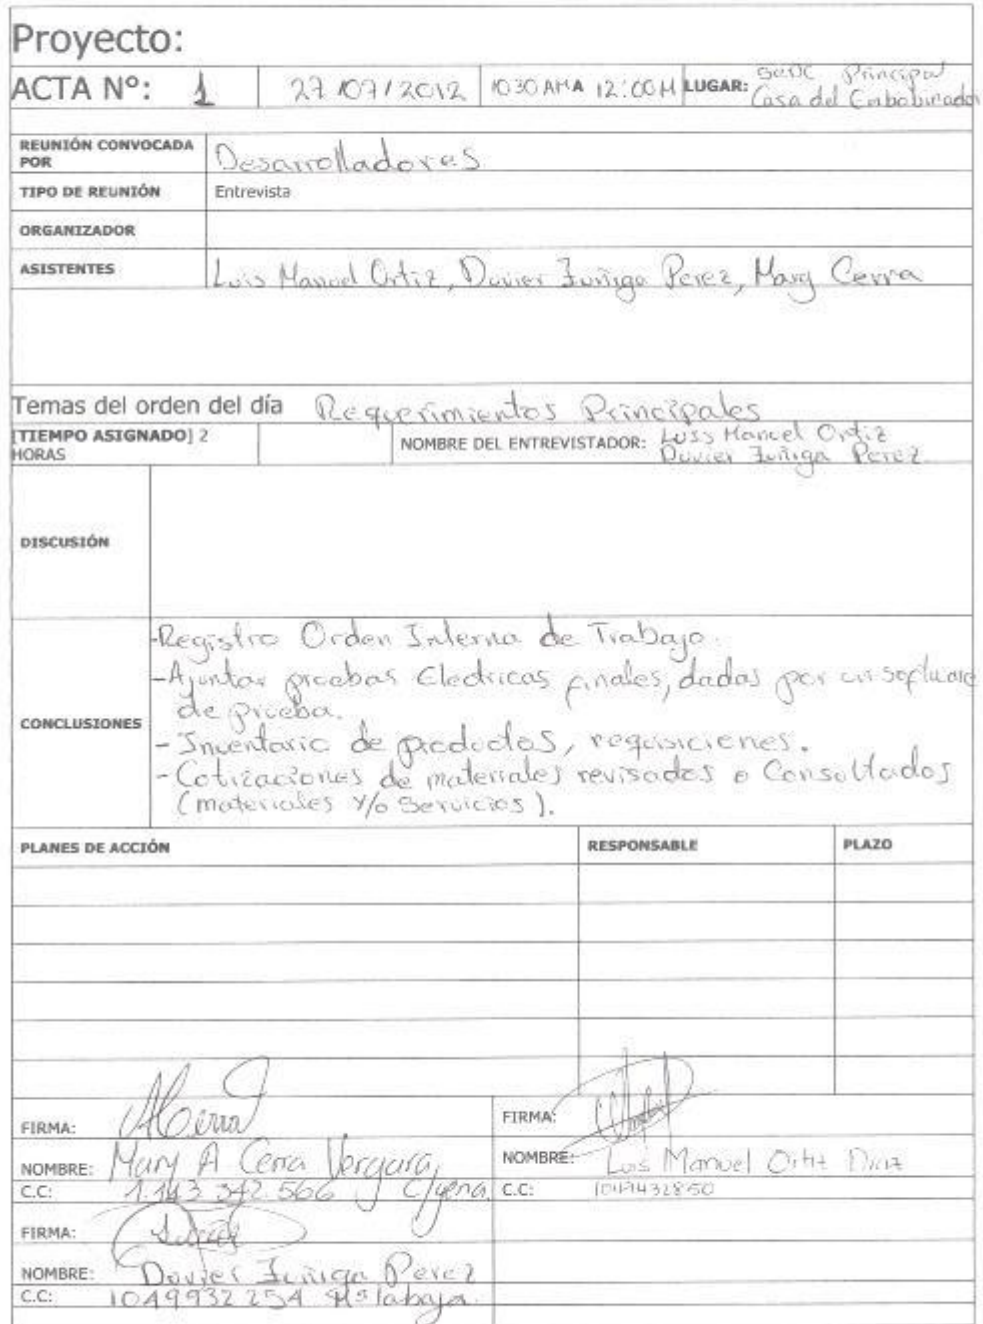 Proyecto:
ACTA Nº: 1 27/07/2012 10:30 AM A 12:00 M LUGAR: Sede Principal
Casa del Embobinador
REUNIÓN CONVOCADA
POR Desarrolladores
TIPO DE REUNIÓN Entrevista
ORGANIZADOR
ASISTENTES Luis Manuel Ortiz, Duvier Zuñiga Perez, Mary Cerra
Temas del orden del día Requerimientos Principales
[TIEMPO ASIGNADO] 2
HORAS
NOMBRE DEL ENTREVISTADOR: Luis Manuel Ortiz
Duvier Zuñiga Perez
DISCUSIÓN
CONCLUSIONES
-Registro Orden Interna de Trabajo.
-Ajuntar pruebas Electricas finales, dadas por un software
de prueba.
-Inventario de productos, requisiciones.
-Cotizaciones de materiales revisados o Consultados
(materiales y/o Servicios).
PLANES DE ACCIÓN RESPONSABLE PLAZO
FIRMA: MCerra
NOMBRE: Mary A Cerra Vergara
C.C: 1.143.342.566 C/gena
FIRMA:
NOMBRE: Luis Manuel Ortiz Diaz
C.C:
FIRMA:
NOMBRE: Duvier Zuñiga Perez
C.C: 1049932254